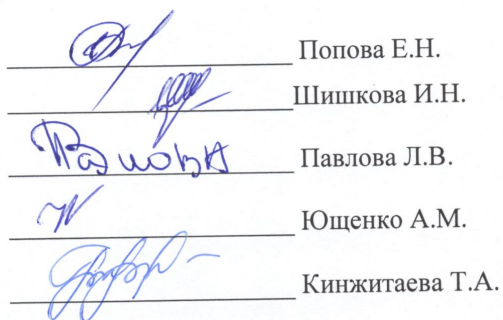 Попова Е.Н.
Шишкова И.Н.
Павлова Л.В.
Ющенко А.М.
Кинжитаева Т.А.